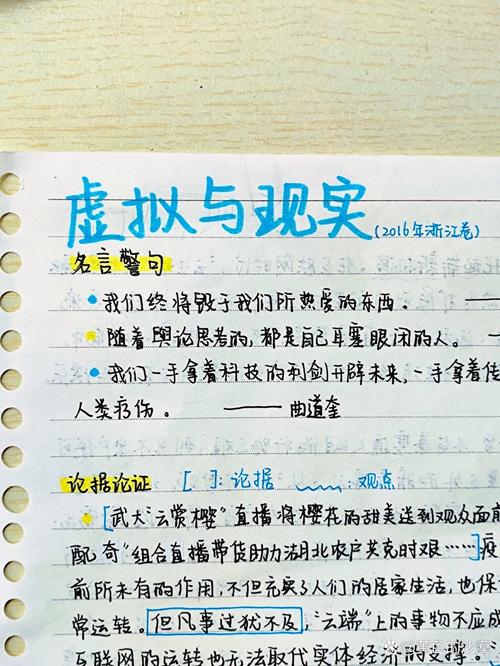 虚拟与现实(2016年浙江卷)
名言警句
我们终将毁于我们所热爱的东西。——
随着舆论思考的,都是自己耳塞眼闭的人。—
我们一手拿着科技的利剑开辟未来,一手拿着
人类疗伤。——曲道奎
论据论证 [ ]:论据 ﹏﹏:观点
[武大"云赏樱"直播将樱花的甜美送到观众面前
配奇"组合直播带货助力湖北农户共克时艰……]疫
前所未有的作用,不但充实了人们的居家生活,也保
常运转。但凡事过犹不及,"云端"上的事物不应成
互联网的运转也无法取代实体经济的支撑。